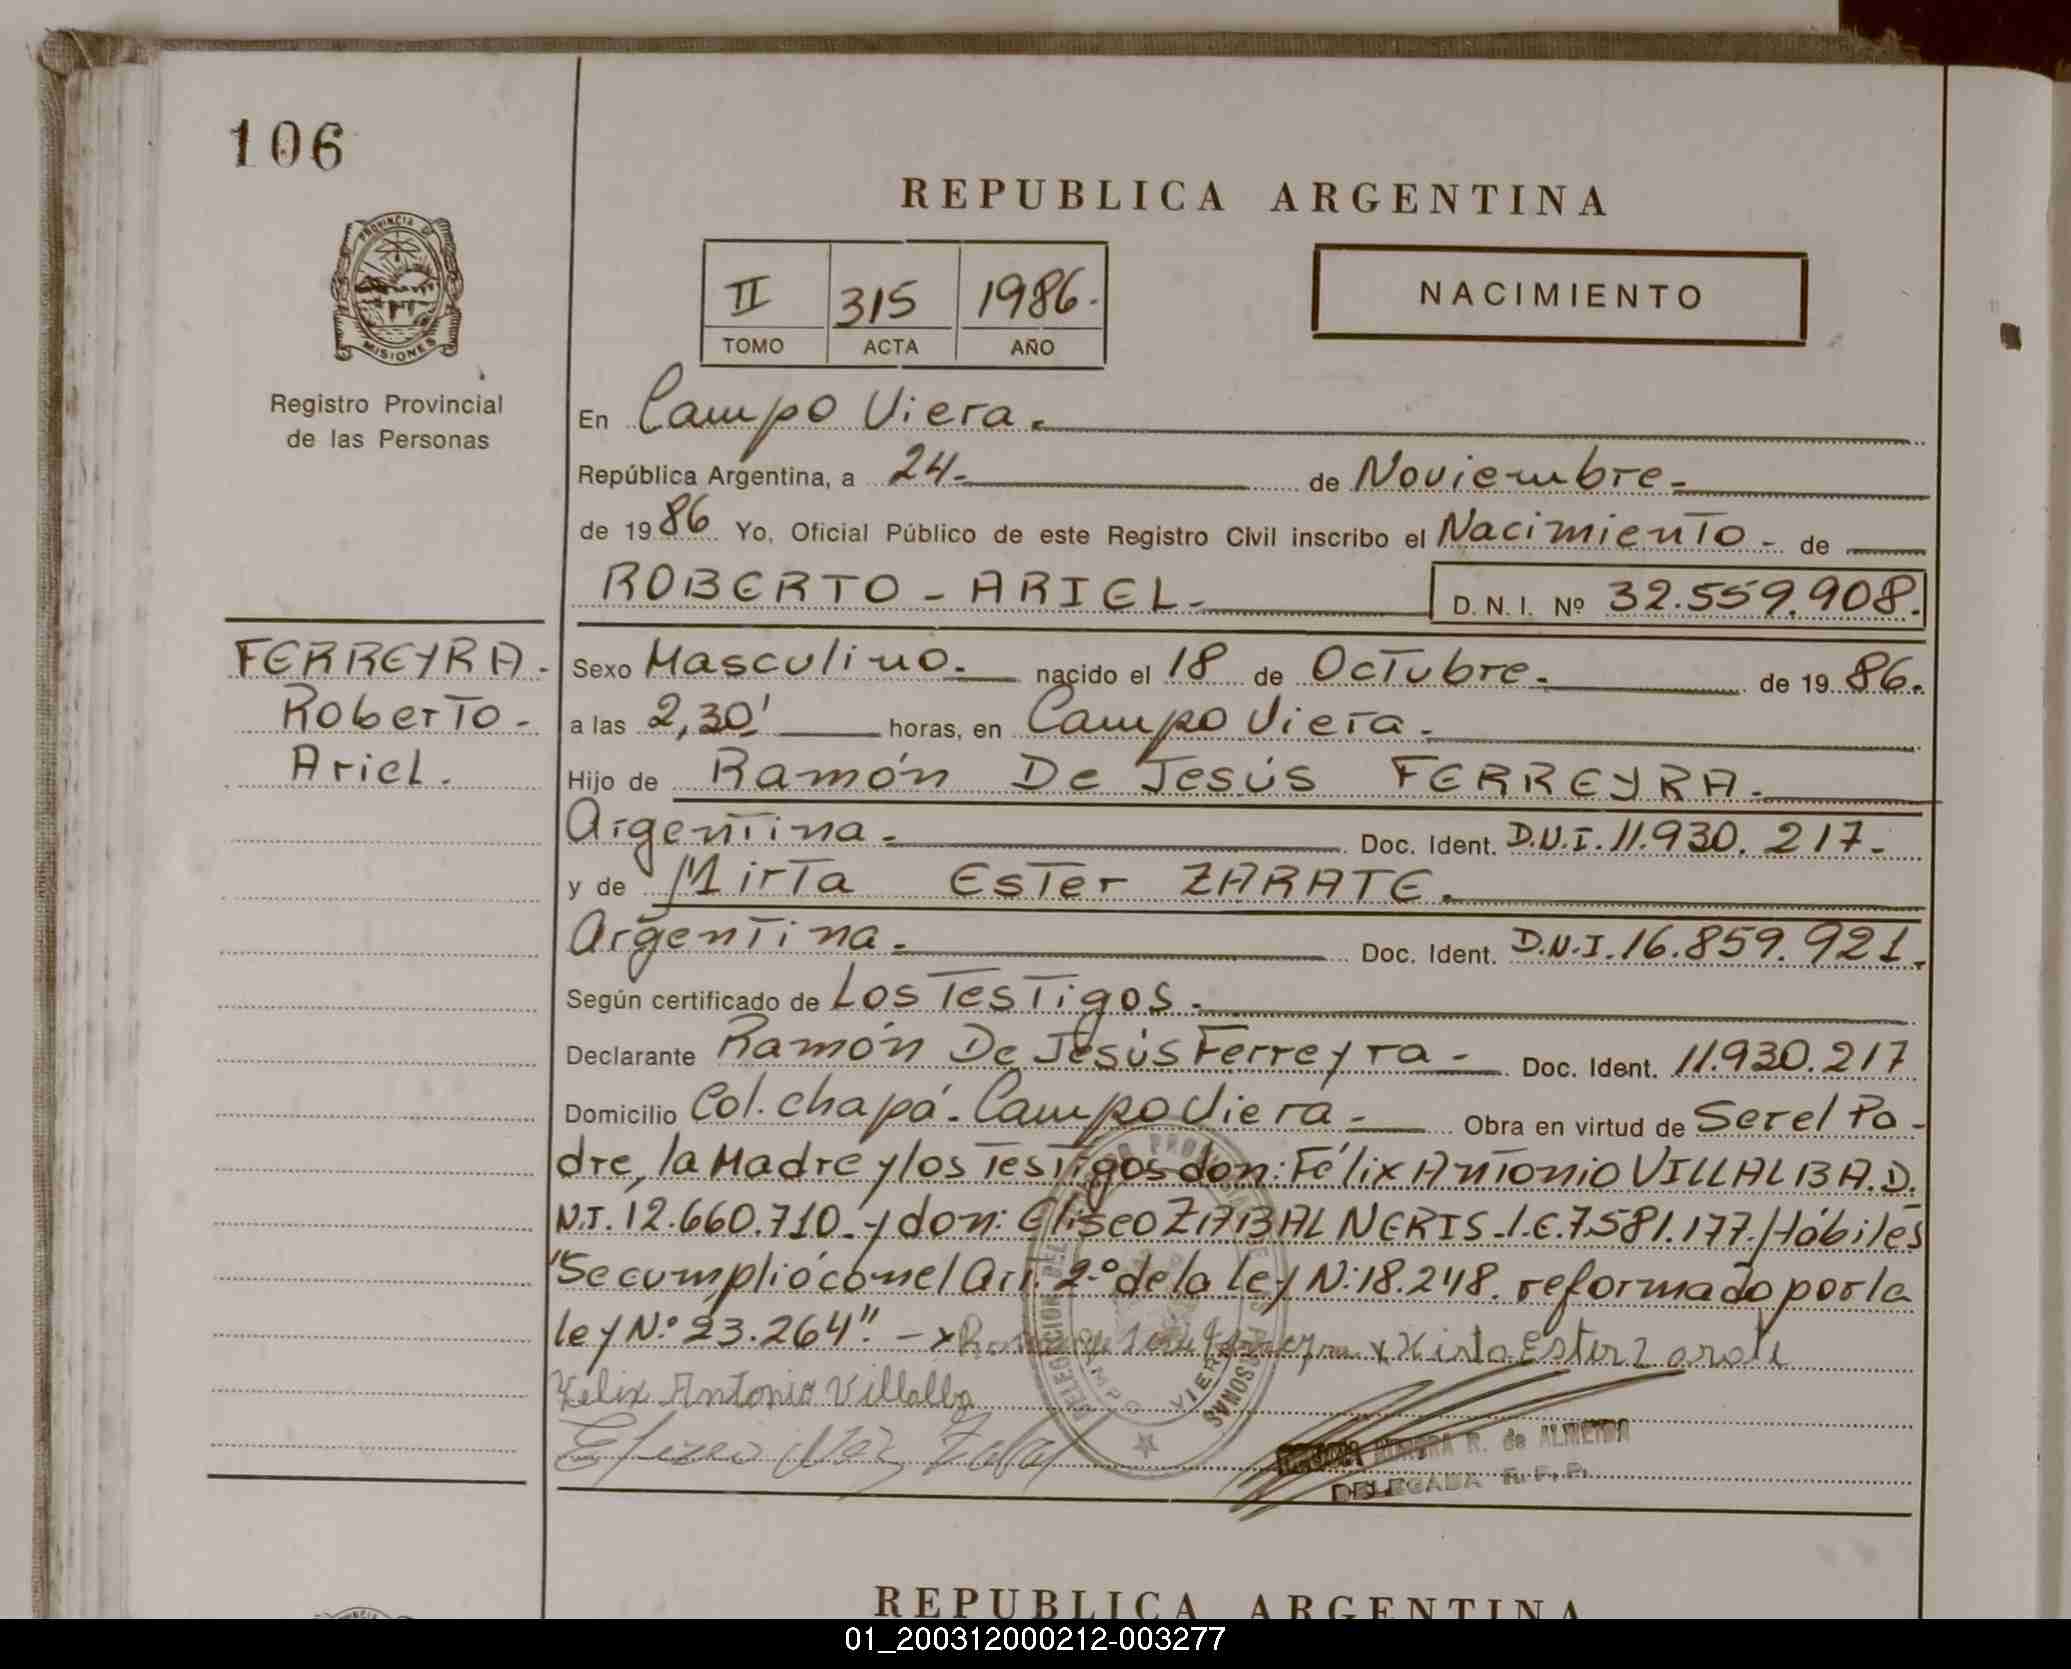 106
REPUBLICA ARGENTINA
PROVINCIA DE
MISIONES
Registro Provincial
de las Personas
II 315 1986.
TOMO ACTA AÑO
NACIMIENTO
En Campo Viera.
República Argentina, a 24. de Noviembre.
de 1986 Yo, Oficial Público de este Registro Civil inscribo el Nacimiento - de
ROBERTO - ARIEL. D. N. I. Nº 32.559.908.
FERREYRA.
Roberto -
Ariel.
Sexo Masculino. nacido el 18 de Octubre. de 1986.
a las 2,30' horas, en Campo Viera.
Hijo de Ramón De Jesús FERREYRA.
Argentina. Doc. Ident. D.N.I. 11.930.217.
y de Mirta Ester ZARATE.
Argentina. Doc. Ident. D.N.I. 16.859.921.
Según certificado de Los Testigos.
Declarante Ramón De Jesús Ferreyra - Doc. Ident. 11.930.217
Domicilio Col. chapá. Campo Viera - Obra en virtud de Ser el Pa-
dre, la Madre y los Testigos don: Félix Antonio VILLALBA. D.
N.I. 12.660.710. y don: Eliseo ZABAL NERIS - L.E. 7.581.177. / Hábiles
"Se cumplió con el Art. 2º de la ley N: 18.248. reformado por la
ley N.º 23.264". - x Ferreyra x Mirta Ester Zarate
Felix Antonio Villalba
Eliseo Zabal
DELEGACION DEL PROVINCIAL DE LAS PERSONAS
CAMPO VIERA
R. de ALMEIDA
DELEGADA R. P. P.
REPUBLICA ARGENTINA
01_200312000212-003277